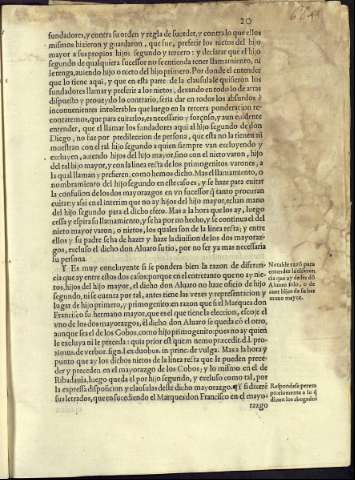 20
fundadores, y contra su orden y regla de suceder, y contra lo que ellos
mismos hizieron y guardaron, que fue, preferir los nietos del hijo
mayor a sus propios hijos segundo y tercero: y declarar que el hijo
segundo de qualquiera sucessor no se entienda tener llamamiento, ni
le tenga, auiendo hijo o nieto del hijo primero. Por donde el entender
que lo tiene aqui, y que en esta parte de la clausula le quisieron los
fundadores llamar y preferir a los nietos, demas de ser contra lo
dispuesto y prouado, lo contrario, seria dar en todos los absurdos e
inconuenientes intolerables que luego en la tercera ponderacion re-
contaremos, que para euitarlos, es necessario y forçoso, y aun euidente
entender, que el llamar los fundadores aqui al hijo segundo de don
Diego, no fue por predileccion de persona, que esta no la tienen ni
muestran con el tal hijo segundo a quien siempre van excluyendo y
excluyen, auiendo hijos del hijo mayor, sino con el nieto varon, hijo
del tal hijo mayor, y con la linea recta de los primogenitos varones, a
la qual llaman y prefieren, como hemos dicho. Mas el llamamiento, o
nombramiento del hijo segundo en este caso es, y se haze para euitar
la confusion de los dos mayorazgos en vn sucessor q̃ tanto procuran
euitar: y assi en el interim que no ay hijos del hijo mayor, echan mano
del hijo segundo para el dicho efeto. Mas a la hora que los ay, luego
cessa y espira su llamamiento, y se ha por no hecho, y se continua el del
nieto mayor varon, o nietos, los quales son de la linea recta; y entre
ellos y su padre se ha de hazer y haze la diuision de los dos mayoraz-
gos, excluso el dicho don Aluaro su tio, por no ser ya mas necessaria
su persona.
¶ Y es muy concluyente si se pondera bien la razon de diferen-
cia que ay entre estos dos casos porque en el entretanto que no ay nie-
tos, hijos del hijo mayor, el dicho don Aluaro no haze oficio de hijo
segundo, ni se cuenta por tal, antes tiene las vezes y representacion y
lugar de hijo primero, y primogenito en razon que si el Marques don
Francisco su hermano mayor, que es el que tiene la eleccion, escoje el
vno de los dos mayorazgos, el dicho don Aluaro se queda cõ el otro,
aunque sea el de los Cobos, como hijo primogenito; pues no ay quien
le excluya ni le preceda: quia prior est quem nemo præcedit. d. l. pro-
ximus, de verbor. signi. l. ex duobus. in princ. de vulga. Mas a la hora y
punto que ay los dichos nietos de la linea recta que le pueden prece-
der y preceden en el mayorazgo de los Cobos; y lo mismo en el de
Ribadauia, luego queda el por hijo segundo, y excluso como tal, por
la expressa disposicion y clausulas deste dicho mayorazgo. ¶ Y si dizen
sus letrados, que en sucediendo el Marques don Francisco en el mayo-
razgo
Notable razõ para
entender la diferen-
cia que ay entre dõ
Aluaro solo, o de
auer hijos de su her
mano mayor.
Respondese peren-
ptoriamente a lo q̃
dizen los abogados